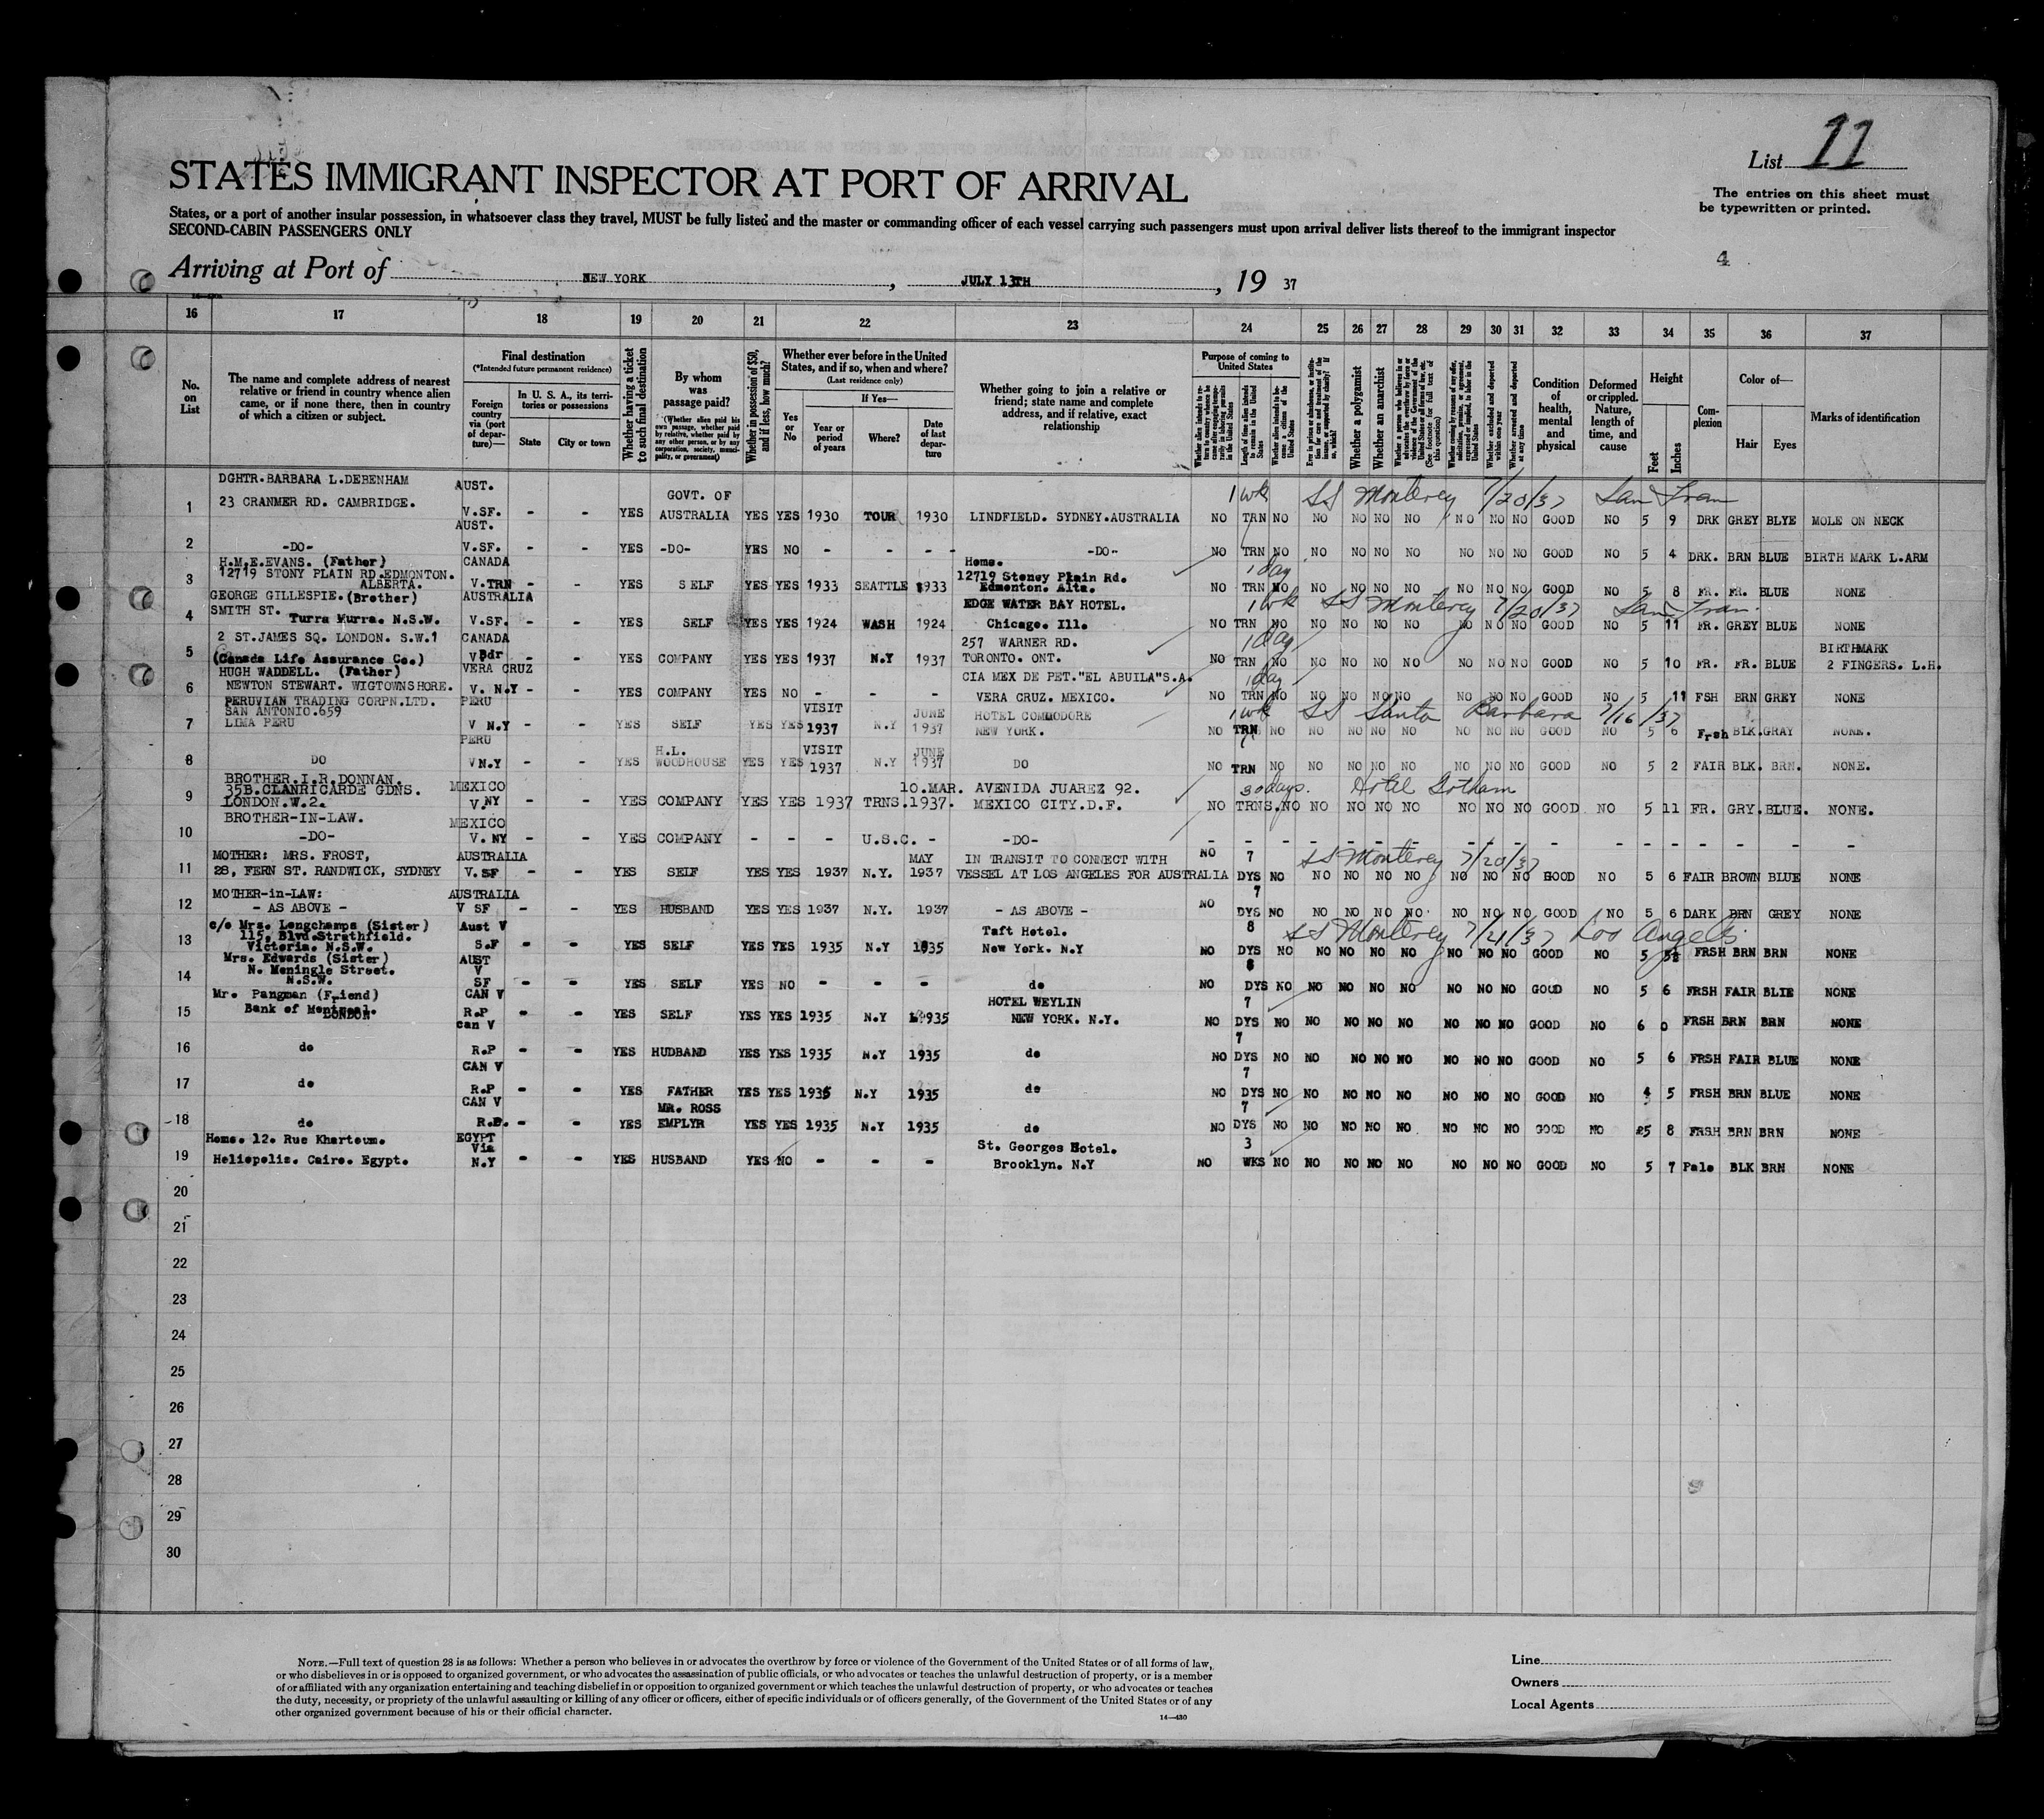 List 11
STATES IMMIGRANT INSPECTOR AT PORT OF ARRIVAL
The entries on this sheet must
be typewritten or printed.
States, or a port of another insular possession, in whatsoever class they travel, MUST be fully listed and the master or commanding officer of each vessel carrying such passengers must upon arrival deliver lists thereof to the immigrant inspector
SECOND-CABIN PASSENGERS ONLY
4
Arriving at Port of NEW YORK, JULY 13TH, 19 37
16 17 18 19 20 21 22 23 24 25 26 27 28 29 30 31 32 33 34 35 36 37
No. on List
The name and complete address of nearest relative or friend in country whence alien came, or if none there, then in country of which a citizen or subject.
Final destination
(*Intended future permanent residence)
Foreign country via (port of departure)—
In U. S. A., its territories or possessions
State
City or town
Whether having a ticket to such final destination
By whom was passage paid?
(Whether alien paid his own passage, whether paid by relative, whether paid by any other person, or by any corporation, society, municipality, or government)
Whether in possession of $50, and if less, how much?
Whether ever before in the United States, and if so, when and where?
(Last residence only)
Yes or No
If Yes—
Year or period of years
Where?
Date of last departure
Whether going to join a relative or friend; state name and complete address, and if relative, exact relationship
Purpose of coming to United States
Whether alien intends to return to country whence he came after engaging temporarily in laboring pursuits in the United States
Length of time alien intends to remain in the United States
Whether alien intends to become a citizen of the United States
Ever in prison or almshouse, or institution for care and treatment of the insane, or supported by charity? If so, which?
Whether a polygamist
Whether an anarchist
Whether a person who believes in or advocates the overthrow by force or violence of the Government of the United States or all forms of law, etc. (See footnote for full text of this question)
Whether coming by reason of any offer, solicitation, promise, or agreement, expressed or implied, to labor in the United States
Whether excluded and deported within one year
Whether arrested and deported at any time
Condition of health, mental and physical
Deformed or crippled. Nature, length of time, and cause
Height
Feet
Inches
Complexion
Color of—
Hair
Eyes
Marks of identification
DGHTR.BARBARA L.DEBENHAM AUST. GOVT. OF 1 wk SS Monterey 7/20/37 San Fran
1 23 CRANMER RD. CAMBRIDGE. V.SF. - - YES AUSTRALIA YES YES 1930 TOUR 1930 LINDFIELD. SYDNEY.AUSTRALIA NO TRN NO NO NO NO NO NO NO NO GOOD NO 5 9 DRK GREY BLYE MOLE ON NECK
AUST.
2 -DO- V.SF. - - YES -DO- YES NO - - - -DO- NO TRN NO NO NO NO NO NO NO NO GOOD NO 5 4 DRK. BRN BLUE BIRTH MARK L.ARM
H.M.E.EVANS. (Father) CANADA Home. 1 day
3 12719 STONY PLAIN RD.EDMONTON. ALBERTA. V.TRN - - YES SELF YES YES 1933 SEATTLE 1933 12719 Stoney Plain Rd. Edmonton. Alta. NO TRN NO NO NO NO NO NO NO NO GOOD NO 5 8 FR. FR. BLUE NONE
GEORGE GILLESPIE.(Brother) AUSTRALIA EDGE WATER BAY HOTEL. 1 wk SS Monterey 7/20/37 San Fran.
4 SMITH ST. Turra Murra. N.S.W. V.SF. - - YES SELF YES YES 1924 WASH 1924 Chicago. Ill. NO TRN NO NO NO NO NO NO NO NO GOOD NO 5 11 FR. GREY BLUE NONE
2 ST.JAMES SQ. LONDON. S.W.1 CANADA 257 WARNER RD. 1 day BIRTHMARK
5 (Canada Life Assurance Co.) V Bdr - - YES COMPANY YES YES 1937 N.Y 1937 TORONTO. ONT. NO TRN NO NO NO NO NO NO NO NO GOOD NO 5 10 FR. FR. BLUE 2 FINGERS. L.H.
HUGH WADDELL. (Father) VERA CRUZ CIA MEX DE PET."EL ABUILA"S.A. 1 day
6 NEWTON STEWART. WIGTOWNSHORE. V. N.Y - - YES COMPANY YES NO - - - VERA CRUZ. MEXICO. NO TRN NO NO NO NO NO NO NO NO GOOD NO 5 11 FSH BRN GREY NONE
PERUVIAN TRADING CORPN.LTD. PERU VISIT 1 wk SS Santa Barbara 7/16/37
SAN ANTONIO.659 JUNE HOTEL COMMODORE
7 LIMA PERU V N.Y YES SELF YES YES 1937 N.Y 1937 NEW YORK. NO TRN NO NO NO NO NO NO NO NO GOOD NO 5 6 Frsh BLK.GRAY NONE.
PERU H.L. VISIT JUNE
8 DO V N.Y YES WOODHOUSE YES YES 1937 N.Y 1937 DO NO TRN NO NO NO NO NO NO NO NO GOOD NO 5 2 FAIR BLK. BRN. NONE.
BROTHER.I.R.DONNAN. MEXICO 10.MAR. AVENIDA JUAREZ 92. 30 days. Hotel Gotham
9 35B.CLANRICARDE GDNS. LONDON.W.2. V.NY YES COMPANY YES YES 1937 TRNS.1937. MEXICO CITY.D.F. NO TRNS.NO NO NO NO NO NO NO NO GOOD NO 5 11 FR. GRY.BLUE. NONE.
BROTHER-IN-LAW. MEXICO
10 -DO- V. NY - - YES COMPANY - - - U.S.C. - -DO- - - - - - - - - - - - - - - - - - -
MOTHER: MRS. FROST, AUSTRALIA MAY IN TRANSIT TO CONNECT WITH NO 7 SS Monterey 7/20/37
11 28, FERN ST. RANDWICK, SYDNEY V.SF - - YES SELF YES YES 1937 N.Y. 1937 VESSEL AT LOS ANGELES FOR AUSTRALIA DYS NO NO NO NO NO NO NO NO GOOD NO 5 6 FAIR BROWN BLUE NONE
MOTHER-in-LAW: AUSTRALIA 7
12 - AS ABOVE - V SF - - YES HUSBAND YES YES 1937 N.Y. 1937 - AS ABOVE - NO DYS NO NO NO NO NO NO NO NO GOOD NO 5 6 DARK BRN GREY NONE
c/o Mrs. Longchamps (Sister) Aust V Taft Hotel. 8 SS Monterey 7/21/37 Los Angels
13 115, Blvd.Strathfield. Victoria. N.S.W. S.F - - YES SELF YES YES 1935 N.Y 1935 New York. N.Y NO DYS NO NO NO NO NO NO NO NO GOOD NO 5 5½ FRSH BRN BRN NONE
Mrs. Edwards (Sister) AUST 8
14 N. Meningle Street. N.S.W. V SF - - YES SELF YES NO - - - do NO DYS NO NO NO NO NO NO NO NO GOOD NO 5 6 FRSH FAIR BLIE NONE
Mr. Pangman (Friend) CAN V HOTEL WEYLIN 7
15 Bank of Montreal. LONDON R.P - - YES SELF YES YES 1935 N.Y 1935 NEW YORK. N.Y. NO DYS NO NO NO NO NO NO NO NO GOOD NO 6 0 FRSH BRN BRN NONE
can V 7
16 do R.P - - YES HUDBAND YES YES 1935 N.Y 1935 do NO DYS NO NO NO NO NO NO NO NO GOOD NO 5 6 FRSH FAIR BLUE NONE
CAN V 7
17 do R.P - - YES FATHER YES YES 1935 N.Y 1935 do NO DYS NO NO NO NO NO NO NO NO GOOD NO 4 5 FRSH BRN BLUE NONE
CAN V MR. ROSS 7
18 do R.P. - - YES EMPLYR YES YES 1935 N.Y 1935 do NO DYS NO NO NO NO NO NO NO NO GOOD NO 5 8 FRSH BRN BRN NONE
Home. 12. Rue Khartoum. EGYPT Via St. Georges Hotel. 3
19 Heliopolis. Cairo. Egypt. N.Y YES HUSBAND YES NO - - - Brooklyn. N.Y NO WKS NO NO NO NO NO NO NO NO GOOD NO 5 7 Pale BLK BRN NONE
20
21
22
23
24
25
26
27
28
29
30
NOTE.—Full text of question 28 is as follows: Whether a person who believes in or advocates the overthrow by force or violence of the Government of the United States or of all forms of law,
or who disbelieves in or is opposed to organized government, or who advocates the assassination of public officials, or who advocates or teaches the unlawful destruction of property, or is a member
of or affiliated with any organization entertaining and teaching disbelief in or opposition to organized government or which teaches the unlawful destruction of property, or who advocates or teaches
the duty, necessity, or propriety of the unlawful assaulting or killing of any officer or officers, either of specific individuals or of officers generally, of the Government of the United States or of any
other organized government because of his or their official character.
14—430
Line
Owners
Local Agents